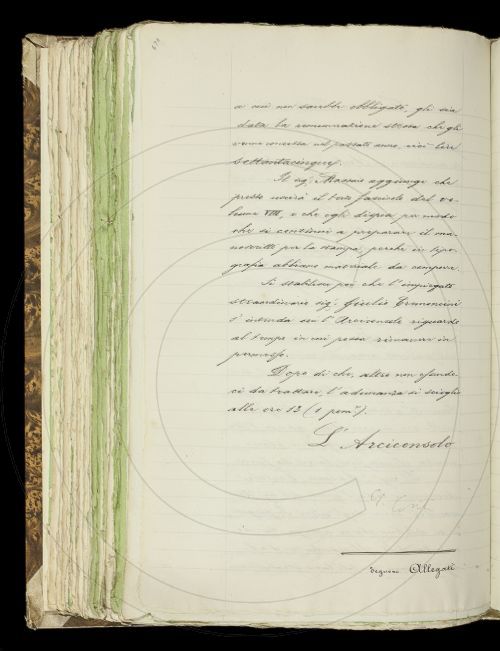 a cui non sarebbe obbligato, gli sia
data la remunerazione stessa che gli
venne concessa nel passato anno, cioè lire
settantacinque.
Il sig. Massaio aggiunge che
presto uscirà il terzo fascicolo del vo-
lume VIII, e che egli disporrà per modo
che si continui a preparare il ma-
noscritto per la stampa, perchè in tipo-
grafia abbiano materiale da comporre.
Si stabilisce poi che l'impiegato
straordinario sig. Giulio
s'intenda con l'Arciconsolo riguardo
al tempo in cui possa rimanere in
permesso.
Dopo di che, altro non essendo-
ci da trattare, l'adunanza si scioglie
alle ore 13 (1 pom.).
L'Arciconsolo
Seguono Allegati